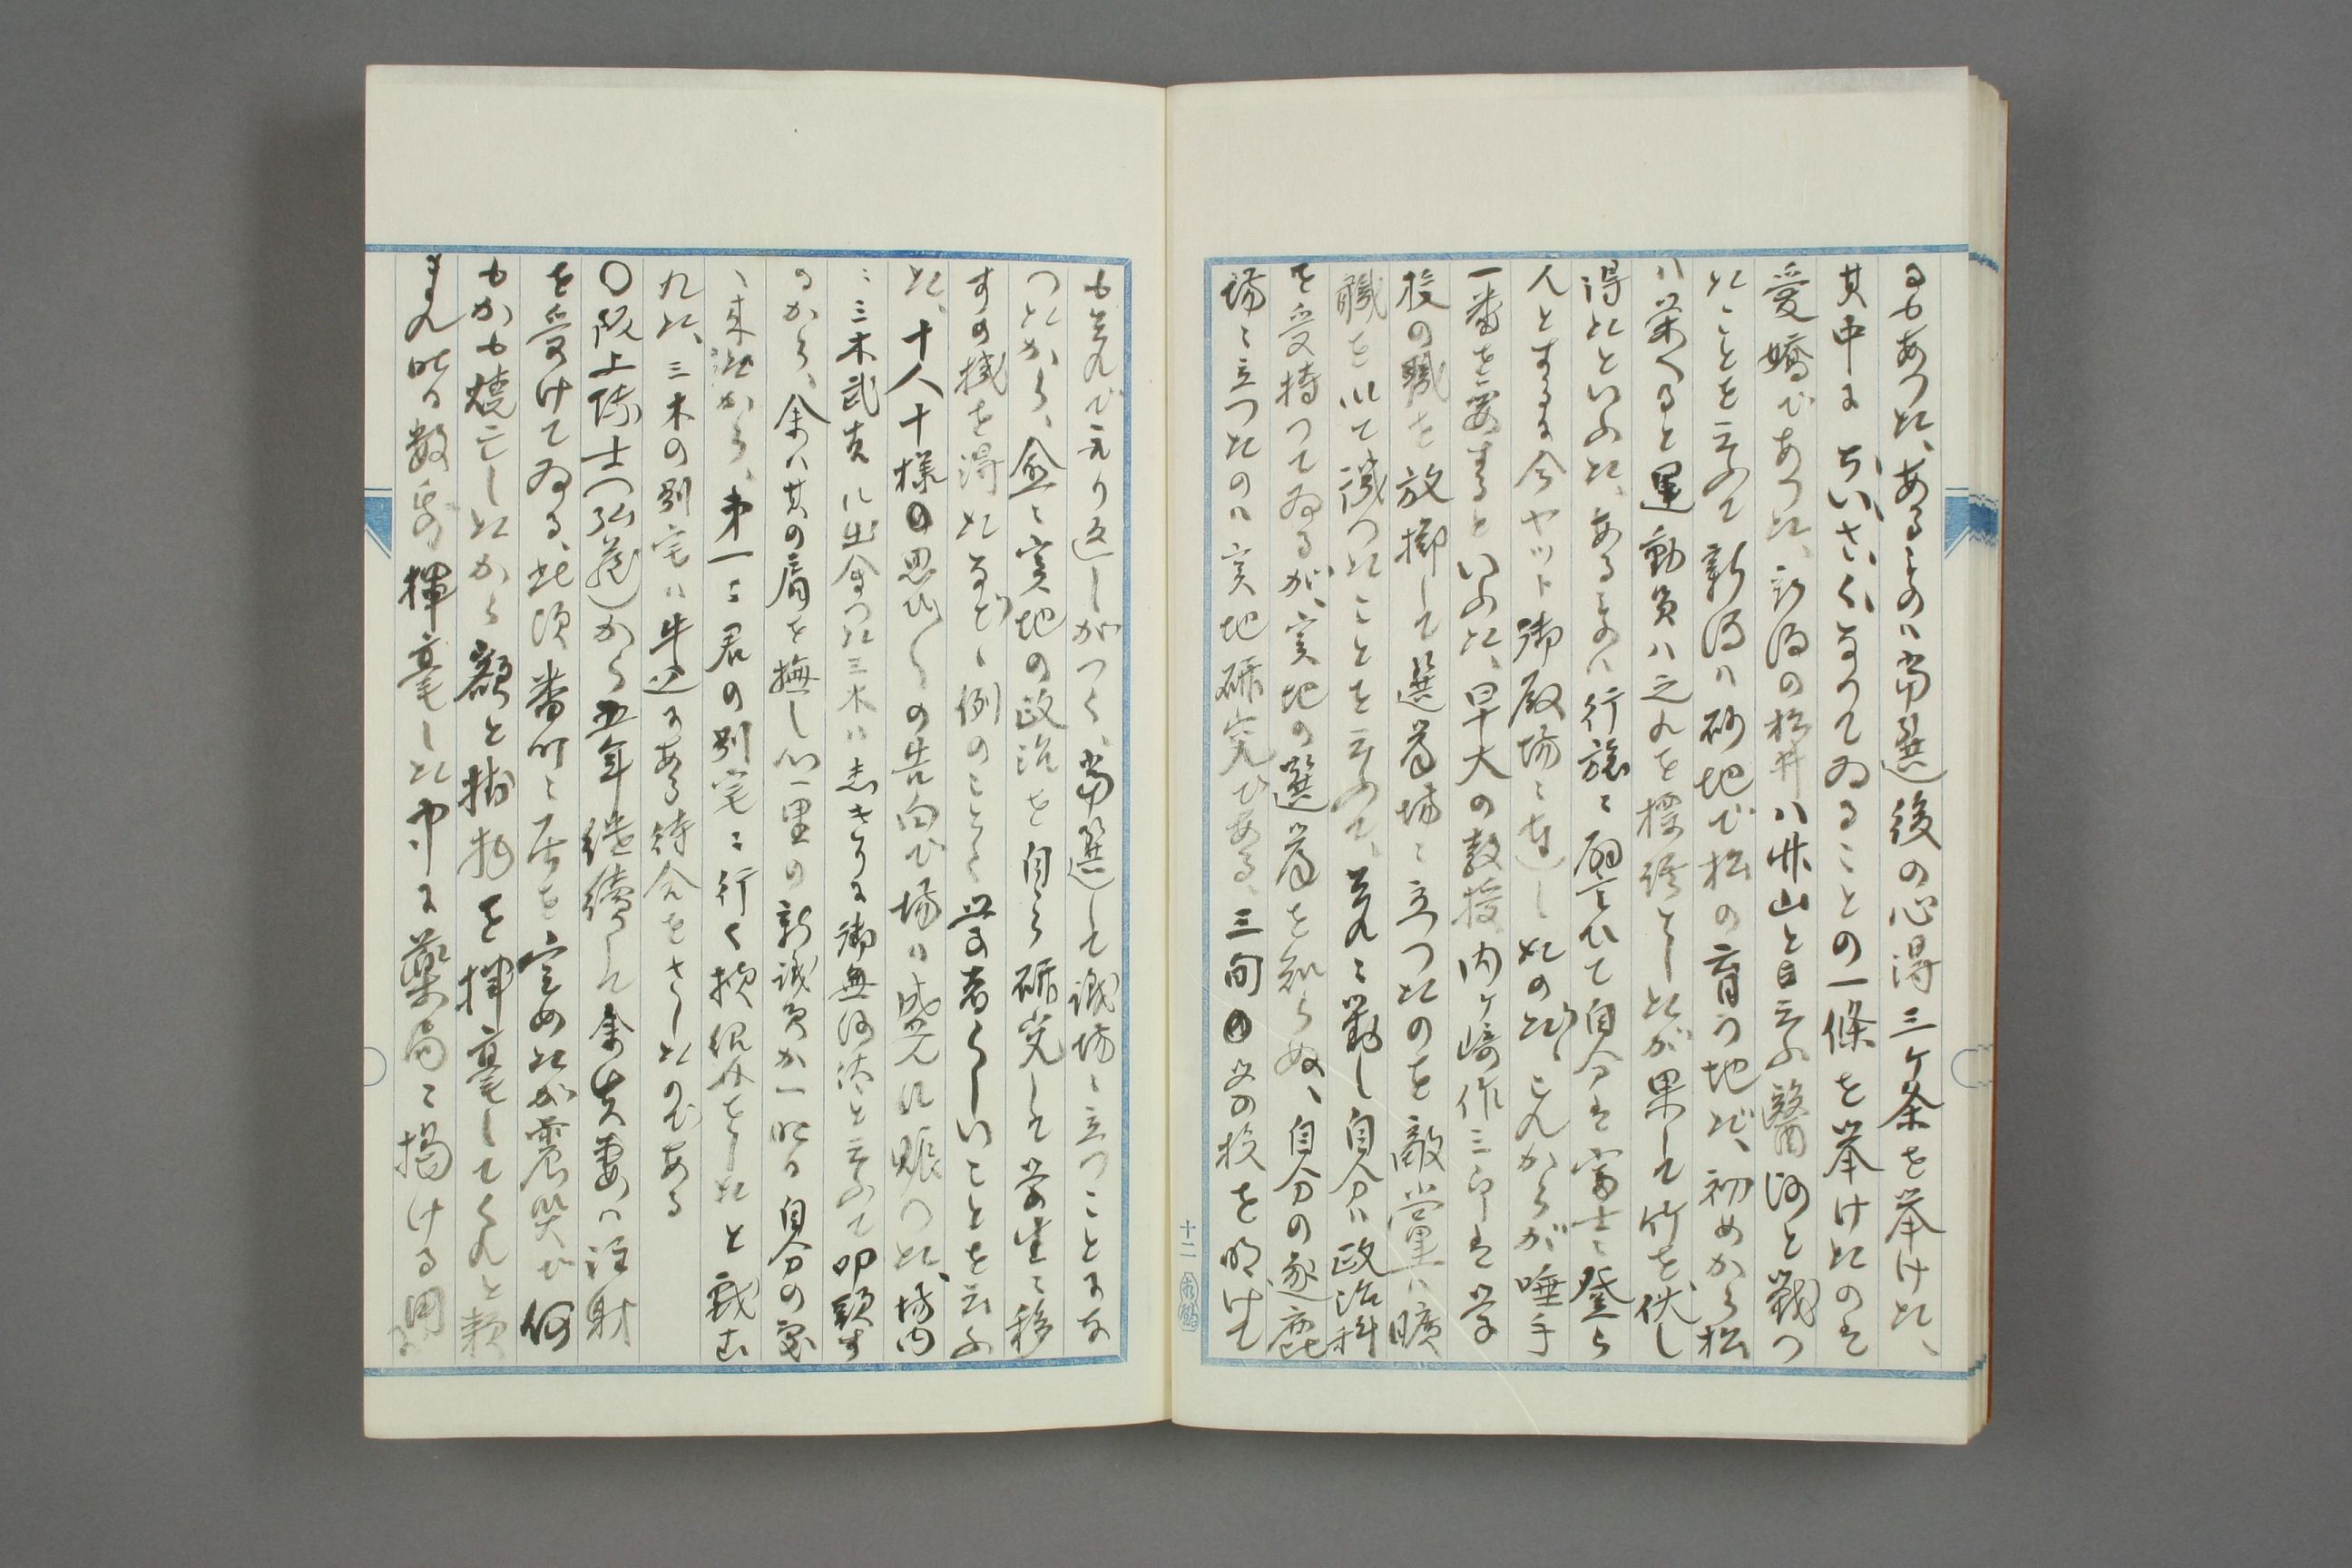 るもあつた、あるものは当選後の心得三ケ条を挙けた、
其中にちいさくなつてゐることの一條を挙けたのは
愛嬌であつた、新潟の松井ハ井山と曰ふ醫師と戰つ
たことを云ふて新潟ハ砂地で松の育つ地だ、初めから松
ハ栄へると運動員ハ之れを標榜としたが果して竹を伏し
得たといふた、あるものハ行旅に廻らひて自分は富士に登ら
人とするに今ヤット御殿場に達したのだ、これからが唾手
一番を要すといふた、早大の教授内ケ崎作三郎は学
校の職を放擲して選挙場に立つたのを敵党ハ曠
職を以て議つたことを云ふて、それに對し自分ハ政治科
を受持つてゐるが、実地の選挙を知らぬ、自分の逐鹿
場に立つたのハ実地研究である、三旬の学校を明けて
も其れで元り返しがつく、当選して議場に立つことにな
つたから、愈に実地の政治を自ら研究して学生に移
すの機を得たなど、例のことく学者らしいことを云ふ
た、十人十様の思ひ〱の告白で場ハ盛んに賑つた、場内
に三木武吉に出会つた三木ハ しきりに御無沙汰を云ふて叩頭す
るから、余ハ其の肩を撫し 一里の新議員か一昨日自分の家
に来 から、第一に君の別宅に行く をした と戯言
れた、三木の別宅ハ牛込にある待合をさしたのである
〇阪上 士(弘蔵)から五年継續して余 妻ハ注射
を受けてゐる、此頃番町に居を定めたが震災で何
もかも焼亡したから額と掛物を揮毫してくれと頼
まれ昨日数 揮毫した中に薬局に掲ける